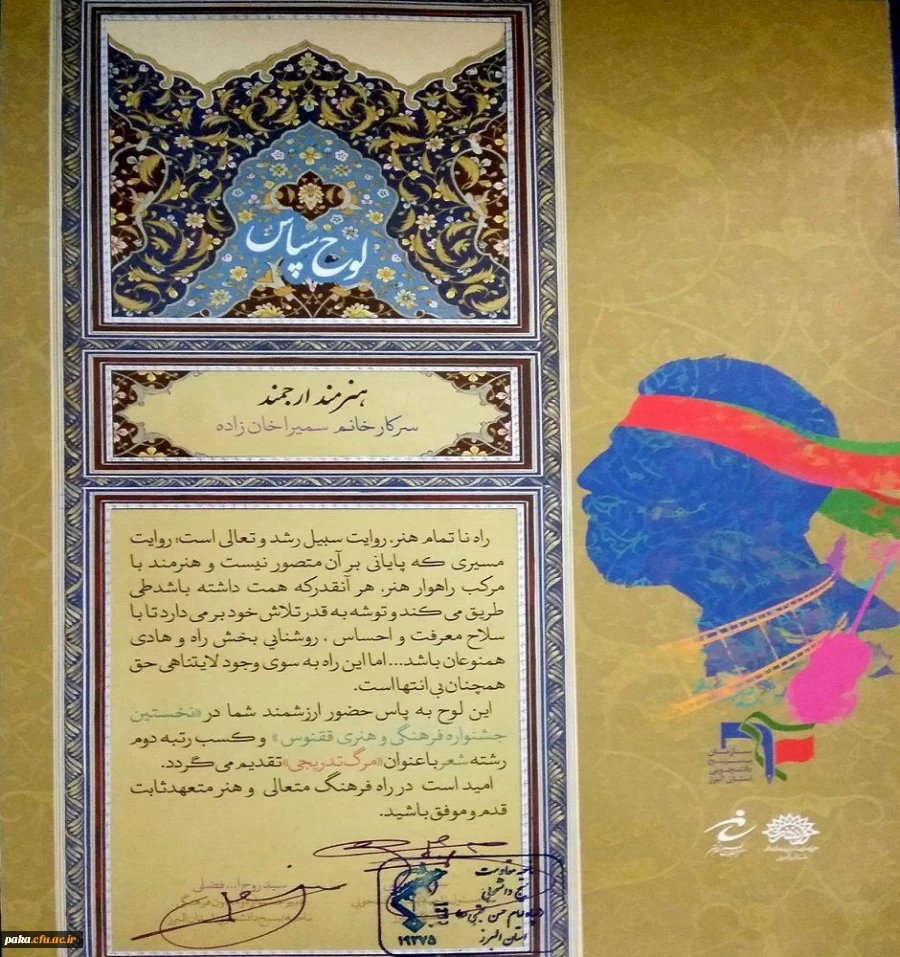 لوح سپاس
هنرمند ارجمند
سرکار خانم سمیرا خان زاده
راه نا تمام هنر، روایت سبیل رشد و تعالی است؛ روایت
مسیری که پایانی بر آن متصور نیست و هنرمند با
مرکب راهوار هنر، هر آنقدر که همت داشته باشد طی
طریق می کند و توشه به قدر تلاش خود بر می دارد تا با
سلاح معرفت و احساس ، روشنایی بخش راه و هادی
همنوعان باشد... اما این راه به سوی وجود لایتناهی حق
همچنان بی انتها است.
این لوح به پاس حضور ارزشمند شما در «نخستین
جشنواره فرهنگی و هنری ققنوس» و کسب رتبه دوم
رشته شعر با عنوان «مرگ تدریجی» تقدیم می گردد.
امید است در راه فرهنگ متعالی و هنر متعهد ثابت
قدم و موفق باشید.
سازمان
بسیج
دانشجویی
استان البرز
سید روح ا... فضلی
ناحیه مقاومت
بسیج دانشجویی
استان البرز
۱۹۳۷۵
paka.cfu.ac.ir